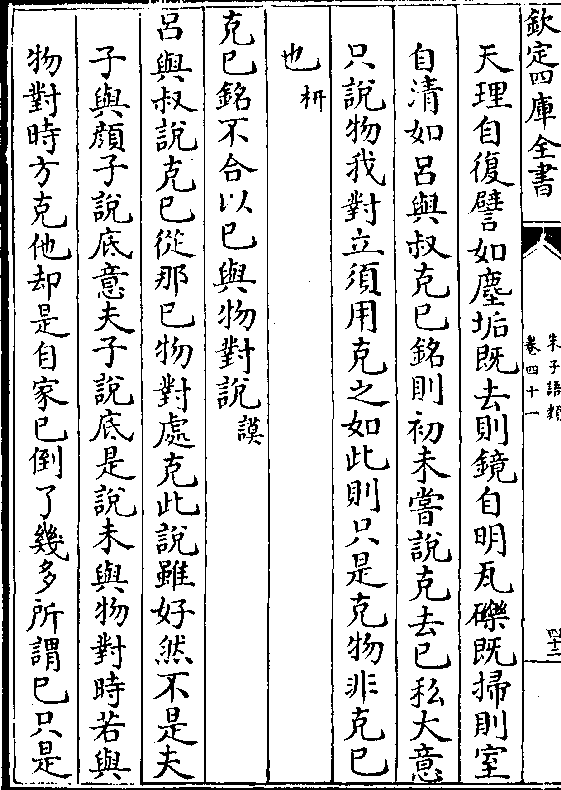 欽定四庫全書
朱子語類
卷四十一
四十二
天理自復譬如塵垢既去則鏡自明瓦礫既掃則室
自清如呂與叔克已銘則初未嘗說克去已私大意
只說物我對立須用克之如此則只是克物非克已
也枅
克已銘不合以已與物對說謨
呂與叔說克已從那已物對處克此說雖好然不是夫
子與顔子說底意夫子說底是說未與物對時若與
物對時方克他却是自家已倒了幾多所謂已只是